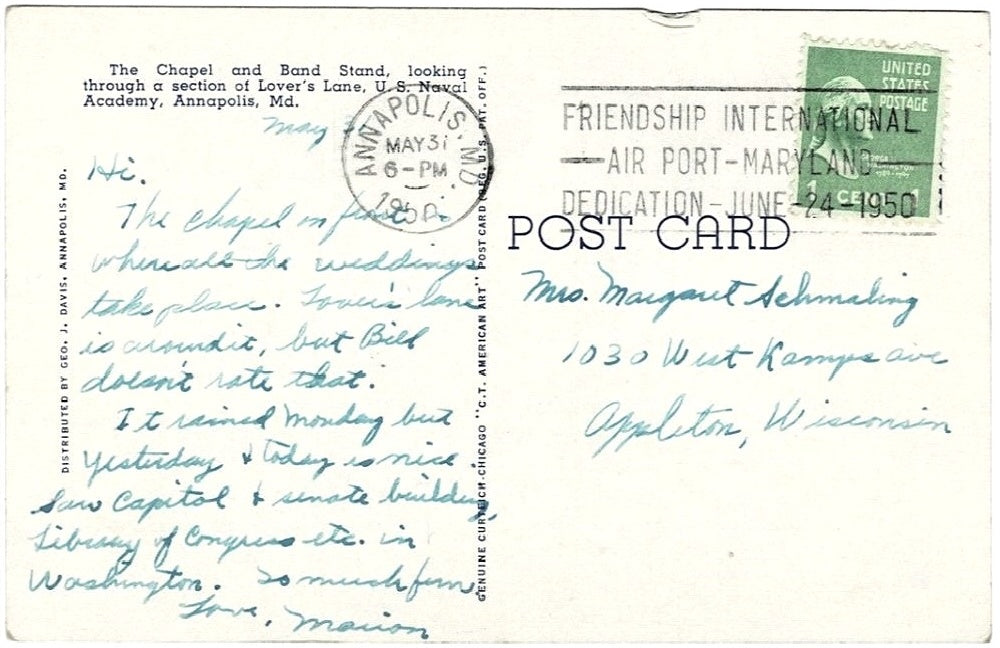 The Chapel and Band Stand, looking
through a section of Lover's Lane, U. S. Naval
Academy, Annapolis, Md.
May
Hi.
The chapel in front is
where all the weddings
take place. Lover's lane
is around it, but Bill
doesn't rate that.
It rained Monday but
yesterday & today is nice.
Saw Capitol & senate building,
Library of Congress etc. in
Washington. So much fun.
Love, Marion
DISTRIBUTED BY GEO. J. DAVIS, ANNAPOLIS, MD.
GENUINE CURTEICH-CHICAGO "C.T. AMERICAN ART" POST CARD (REG. U.S. PAT. OFF.)
ANNAPOLIS, MD
MAY 31
6-PM
1950
FRIENDSHIP INTERNATIONAL
AIR PORT-MARYLAND
DEDICATION-JUNE-24-1950
UNITED
STATES
POSTAGE
GEORGE
WASHINGTON
1789-1797
1 CENT 1
POST CARD
Mrs. Margaret Schmaling
1030 West Kamps ave
Appleton, Wisconsin